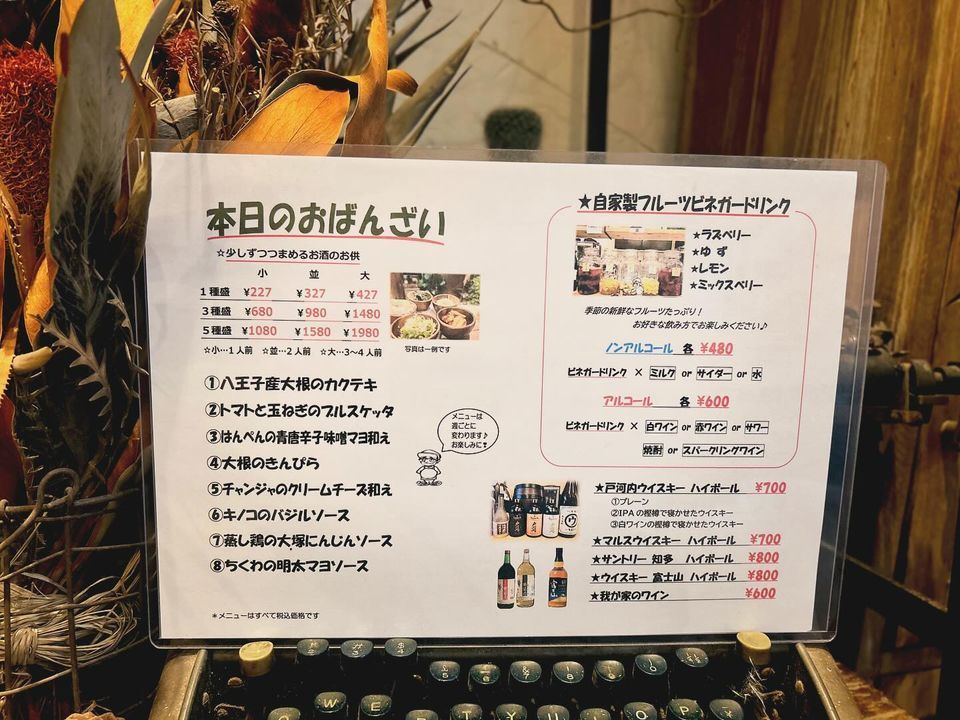 本日のおばんざい
☆少しずつつまめるお酒のお供
小 並 大
1種盛 ¥227 ¥327 ¥427
3種盛 ¥680 ¥980 ¥1480
5種盛 ¥1080 ¥1580 ¥1980
☆小…1人前 ☆並…2人前 ☆大…3～4人前
写真は一例です
①八王子産大根のカクテキ
②トマトと玉ねぎのブルスケッタ
③はんぺんの青唐辛子味噌マヨ和え
④大根のきんぴら
⑤チャンジャのクリームチーズ和え
⑥キノコのバジルソース
⑦蒸し鶏の大塚にんじんソース
⑧ちくわの明太マヨソース
メニューは
週ごとに
変わります♪
お楽しみに！
＊メニューはすべて税込価格です
★自家製フルーツビネガードリンク
★ラズベリー
★ゆず
★レモン
★ミックスベリー
季節の新鮮なフルーツたっぷり！
お好きな飲み方でお楽しみください♪
ノンアルコール 各 ¥480
ビネガードリンク × ミルク or サイダー or 水
アルコール 各 ¥600
ビネガードリンク × 白ワイン or 赤ワイン or サワー
焼酎 or スパークリングワイン
★戸河内ウイスキー ハイボール ¥700
①プレーン
②IPAの樽で寝かせたウイスキー
③白ワインの樽で寝かせたウイスキー
★マルスウイスキー ハイボール ¥700
★サントリー 知多 ハイボール ¥800
★ウイスキー 富士山 ハイボール ¥800
★我が家のワイン ¥600